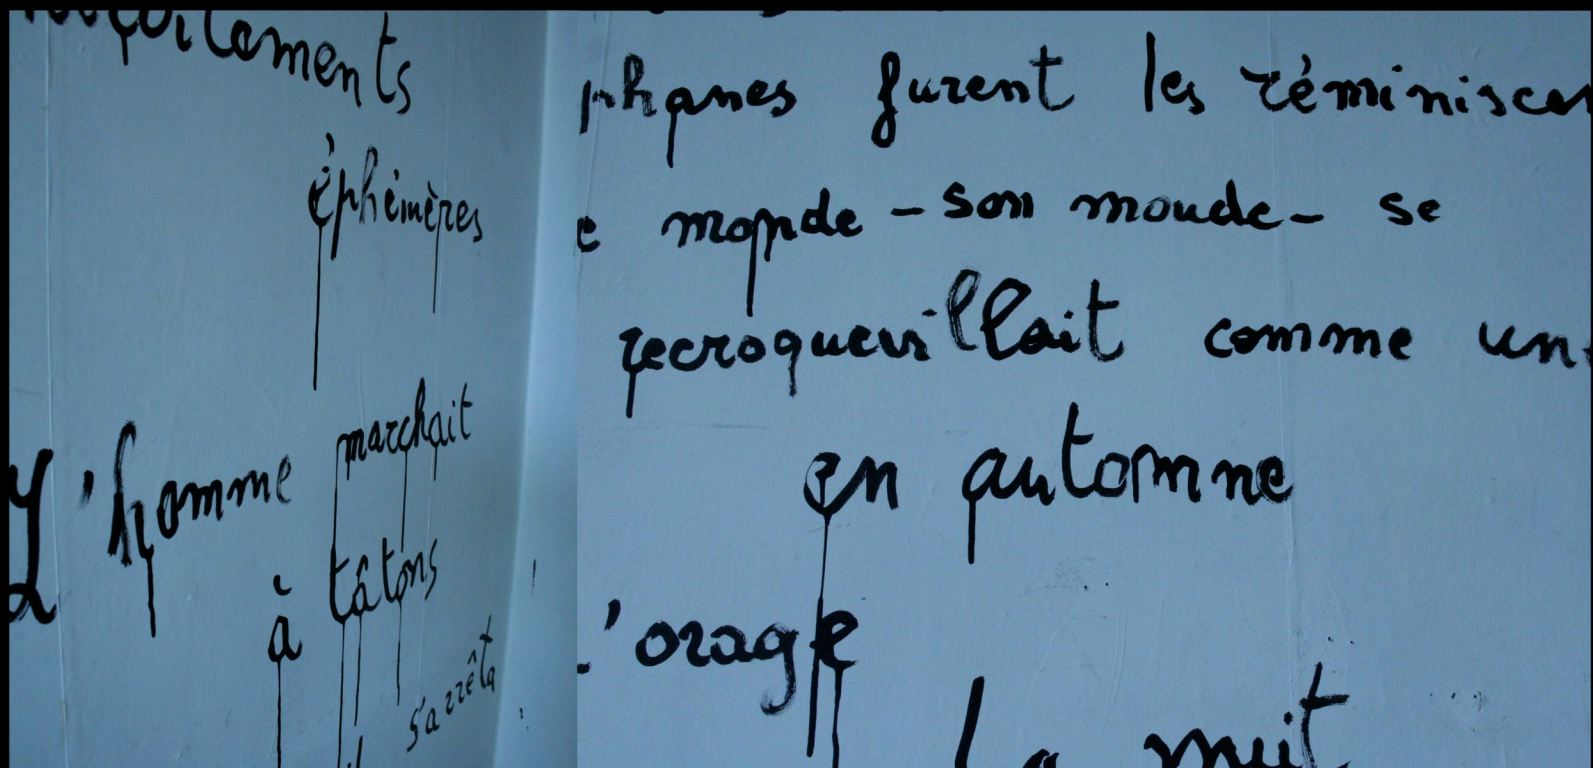 éphémères
L'homme marchait
à tâtons
s'arrêta
phanes furent les réminiscen
e monde - son monde - se
recroquevillait comme un
en automne
l'orage
la nuit